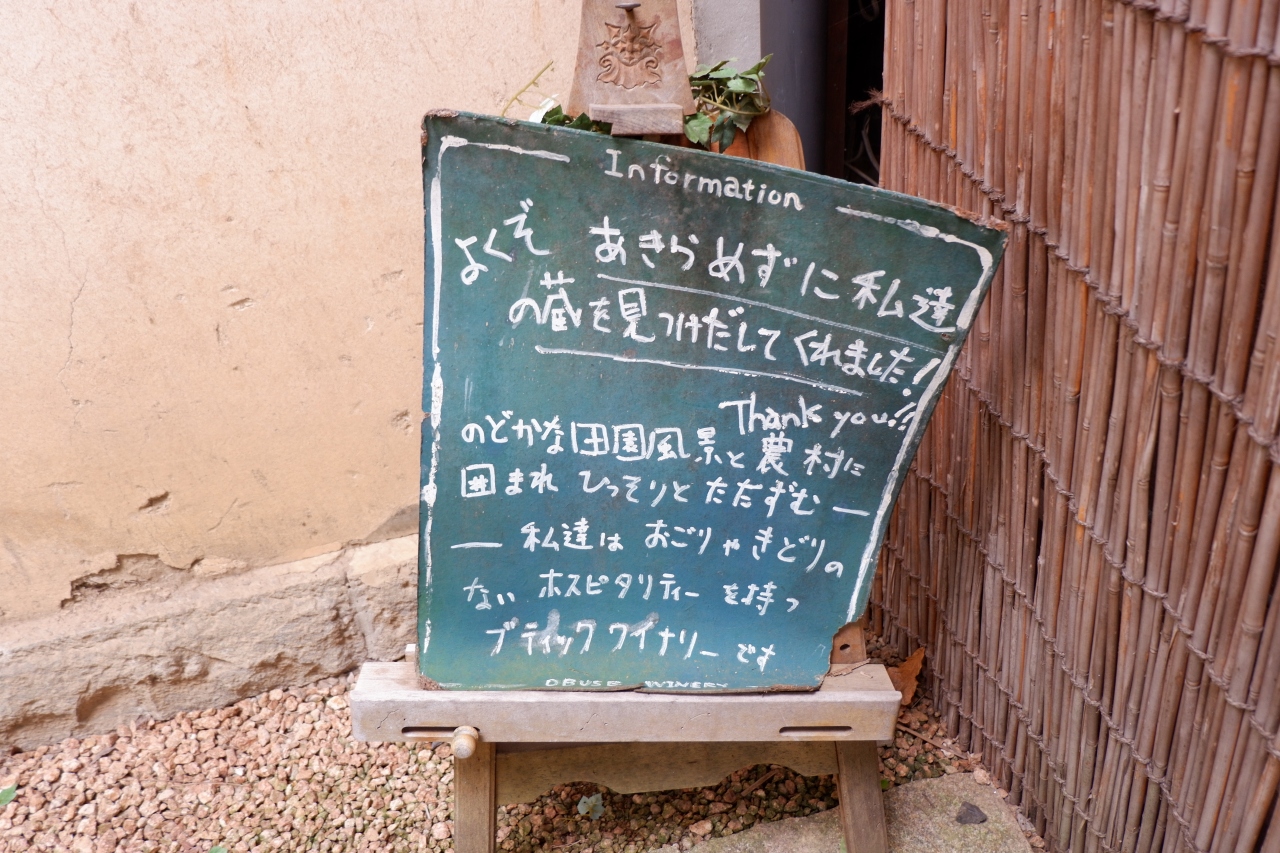 Information
よくぞ あきらめずに私達
の蔵を見つけだしてくれました!
Thank you!!
のどかな田園風景と農村に
囲まれ ひっそりとたたずむ —
— 私達は おごりやきどりの
ない ホスピタリティー を持つ
ブティック ワイナリー です
OBUSE WINERY